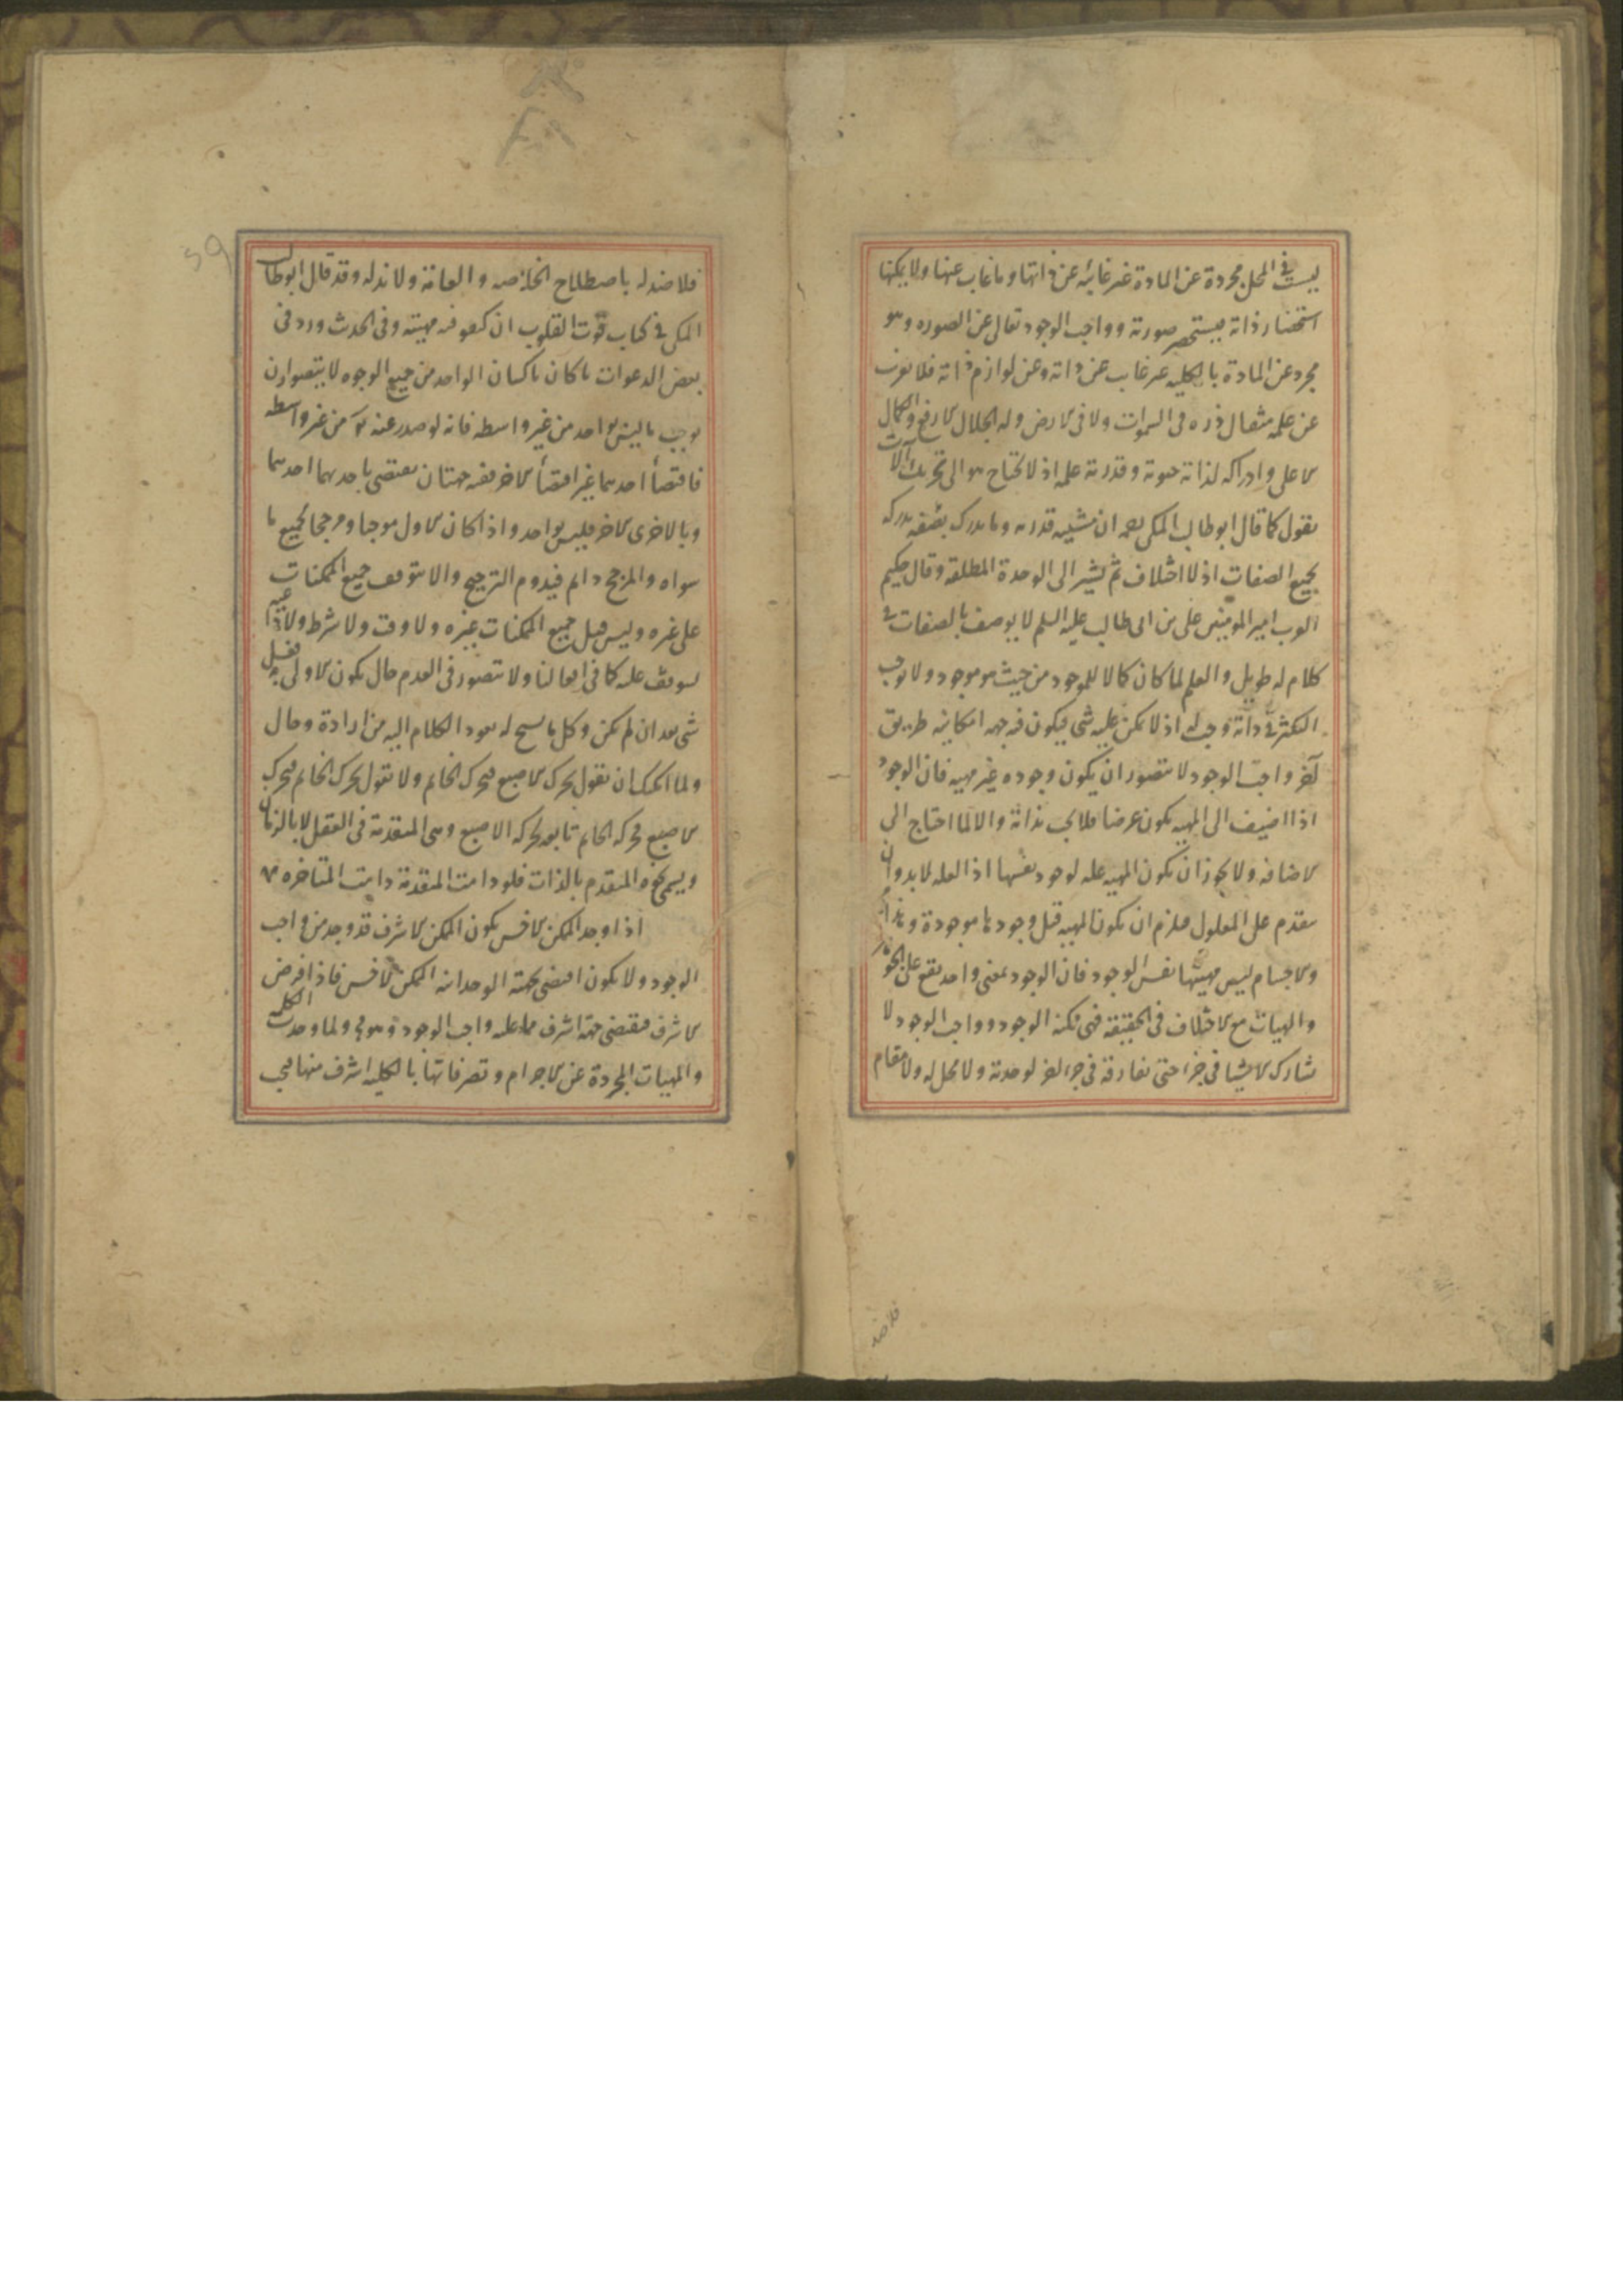 ليست فى المحل مجردة عن المادة غير غائبه عن ذاتها وما غاب عنها ولا يمكنها
استحضار ذاته يستحضر صورته وواجب الوجود تعالى عن الصوره وهو
مجرد عن المادة بالكليه غير غايب عن ذاته وعن لوازم ذاته فلا يعزب
عن علمه مثقال ذره فى السموات ولا فى الارض وله الجلال الارفع والكمال
الاعلى وادراكه لذاته حيوته وقدرته علمه اذ لا تحتاج هو الى تحريك آلات
نقول كما قال ابوطالب المكى رحمه ان مشيه قدرته وما يدرك بصفه يدركه
بجميع الصفات اذ لا اختلاف ثم يشير الى الوحدة المطلقه وقال حكيم
العرب امير المومنين على بن ابى طالب عليه السلم لا يوصف بالصفات فى
كلام له طويل والعلم لما كان كمالا للموجود من حيث هو موجود ولا يوجب
التكثر فى ذاته وجب له اذ لا يمكن عليه شى فيكون فيه جهه امكانيه طريق
آخر واجب الوجود لا يتصور ان يكون وجوده غير مهيه فان الوجود
اذا اضيف الى المهيه يكون عرضا فلا يجب بذاته والا لما احتاج الى
الاضافه ولا يجوز ان يكون المهيه عله لوجود نفسها اذ العله لا بد وان
يتقدم على المعلول فيلزم ان يكون المهيه قبل وجودها موجودة وهذا
والاجسام ليس مهيتها نفس الوجود فان الوجود بمعنى واحد يقع على الجوهر
والهيات مع الاختلاف فى الحقيقه فهى ممكنه الوجود وواجب الوجود لا
تشارك الاشيا فى جزء حتى تفارقه فى جزء اخر لوحدته ولا محل له ولا مقام
فلا ضد
فلا ضد له باصطلاح الخاصه والعامة ولا ند له وقد قال ابوطالب
المكى فى كتاب قوت القلوب ان كونه مهيته وفى الحدث ورد فى
بعض الدعوات يا كان يا كينان الواحد من جميع الوجوه لا يتصور ان
يوجب ما ليس بواحد من غير واسطه فانه لو صدر عنه من غير واسطه
فاقتضأ احدهما غير اقتضأ الاخر ففيه جهتان يقتضى باحديهما احدهما
وبالاخرى الاخر فليس بواحد واذا كان الاول موجبا ومرجحا لجميع ما
سواه والمرجح دائم فيدوم الترجيح والا يتوقف جميع الممكنات
على غيره وليس قبل جميع الممكنات غيره ولا وقت ولا شرط ولا داعيه
يتوقف عليه كما فى افعالنا ولا يتصور فى العدم حال يكون الاولى به فعل
شى بعد ان لم يكن وكل ما يسنح له يعود الكلام اليه من ارادة وحال
ولما امكنك ان تقول تحرك الاصبع فتحرك الخاتم ولا تقول تحرك الخاتم فتحرك
الاصبع فحركه الخاتم تابعه لحركه الاصبع وهى المتقدمة فى العقل لا بالزمان
ويسمى نحوه المتقدم بالذات فلو دامت المتقدمة دامت المتاخره
اذا وجد الممكن الاخس يكون الممكن الاشرف قد وجد من واجب
الوجود ولا يكون اقتضى بجهته الوحدانيه الممكن الاخس فاذا فرض
الاشرف فيقتضى جهة اشرف مما عليه واجب الوجود وهو مح ولما وجدت الكليه
والمهيات المجردة عن الاجرام وتصرفاتها بالكليه اشرف منها فيجب